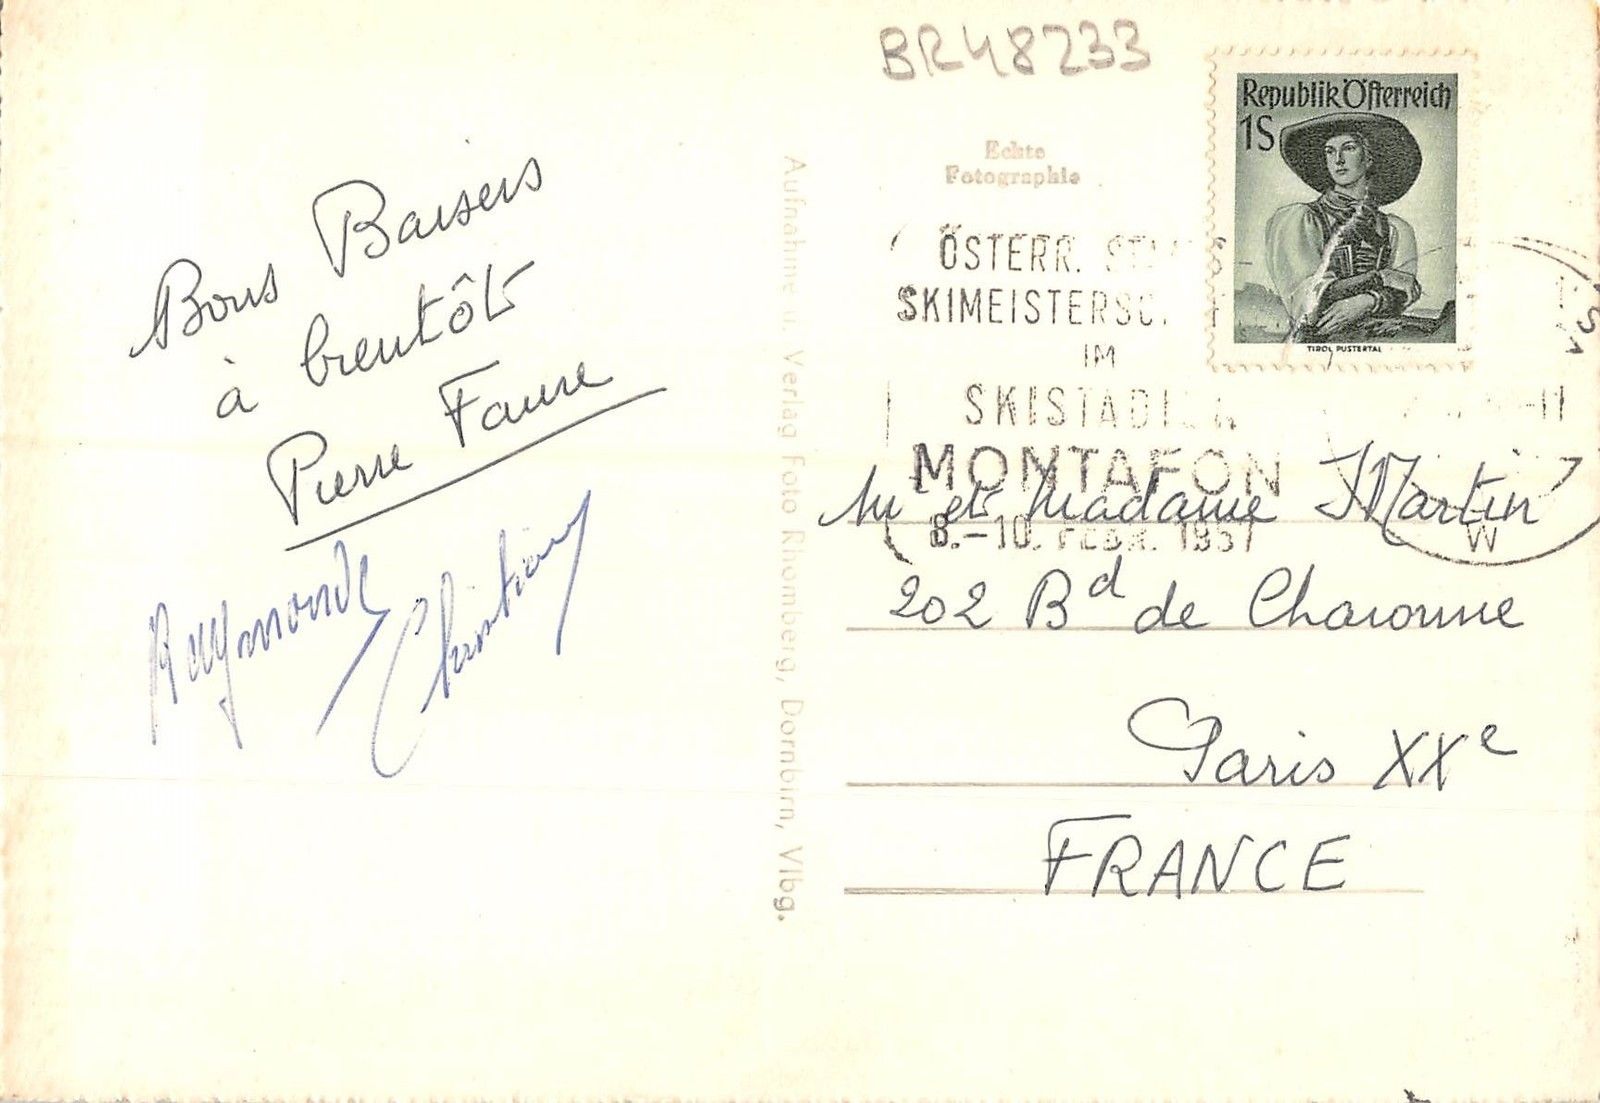 BR48233
Republik Österreich
1S
TIROL PUSTERTAL
Echte
Fotographie
ÖSTERR.
SKIMEISTERSC
IM
SKISTADION
MONTAFON
8.-10. FEBR. 1957
W
Bons Baisers
à bientôt
Pierre Faure
Raymonde
Christiane
Aufnahme u. Verlag Foto Rhomberg, Dornbirn, Vlbg.
M et Madame Martin
202 Bd de Charonne
Paris XXe
FRANCE